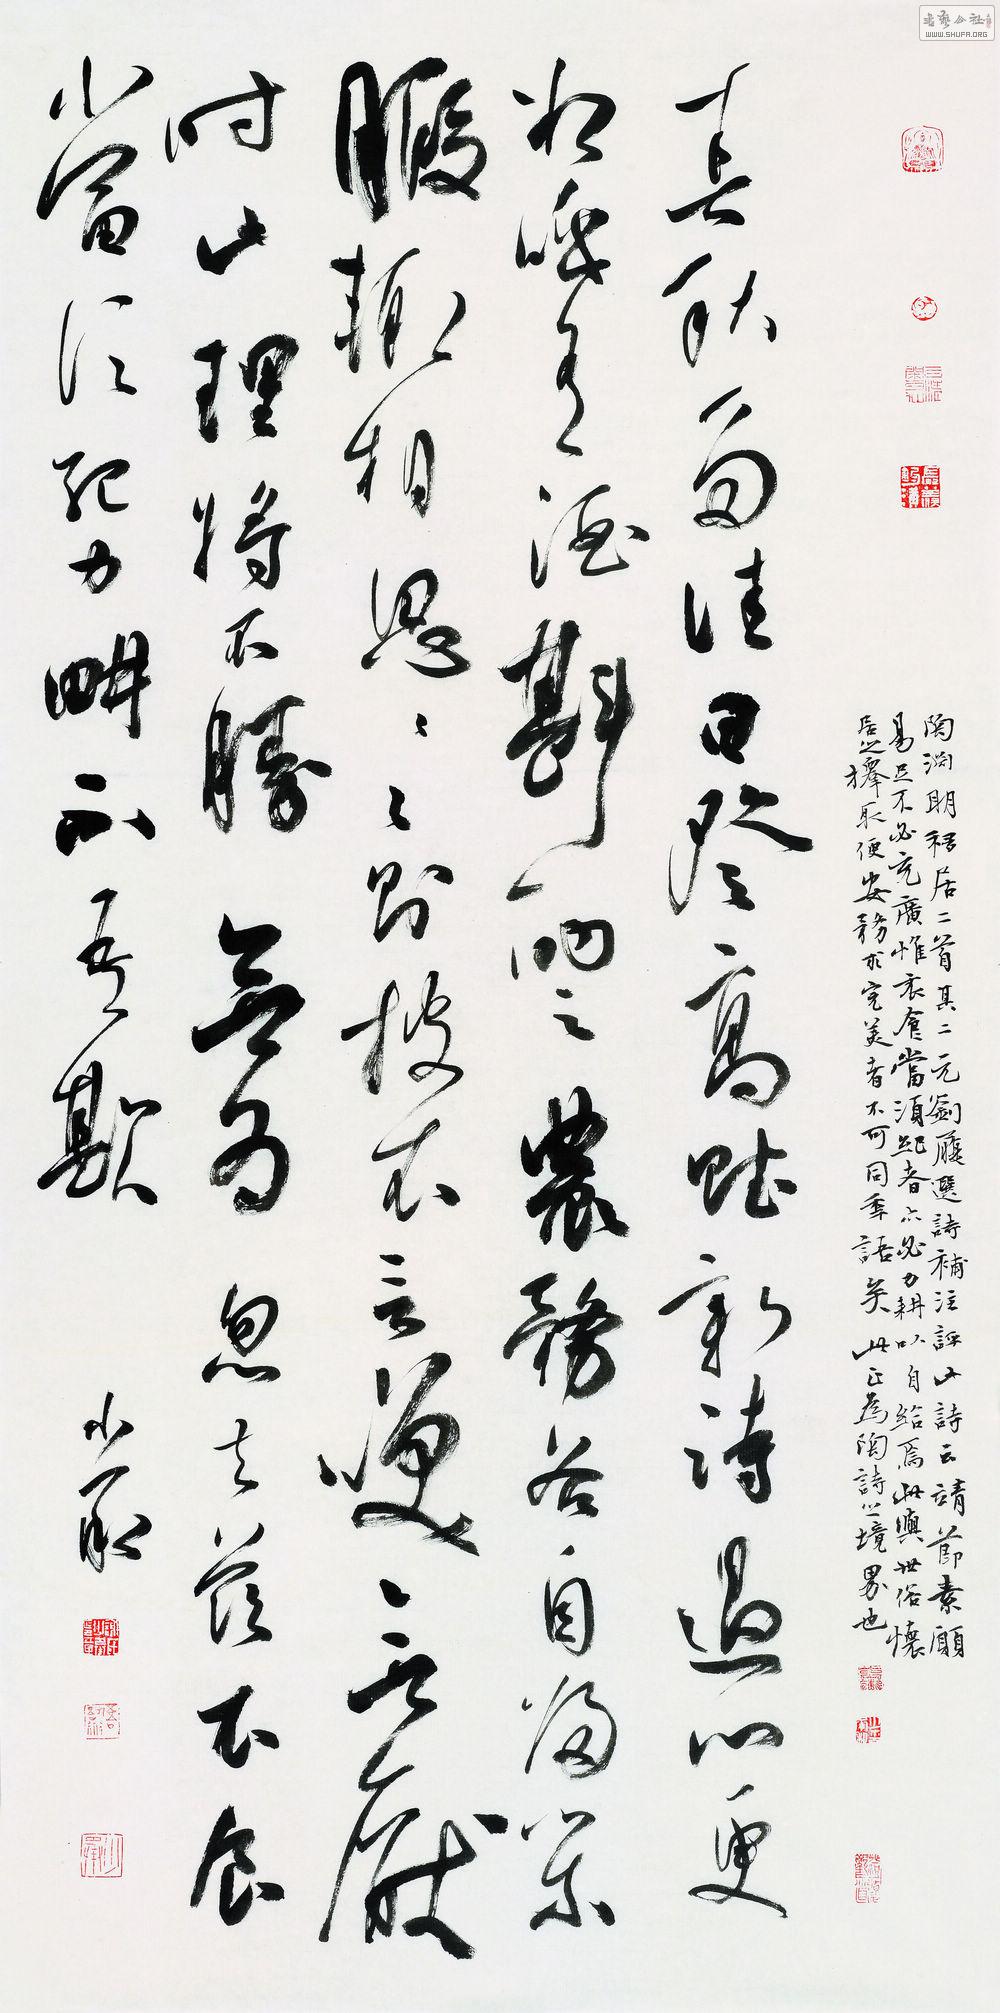 書藝公社
WWW.SHUFA.ORG
陶淵明移居二首其二元劉履選詩補注評此詩云靖節素願
易足不必充廣惟衣食當須紀者亦必力耕以自給焉此與世俗懷
居之擇取便安務求完美者不可同年語矣此正為陶詩之境界也
春秋多佳日登高賦新詩過門更
相呼有酒斟酌之農務各自歸閑
暇輒相思〻〻則披衣言笑無厭
時此理將不勝無為忽去茲衣食
當須紀力耕不吾欺